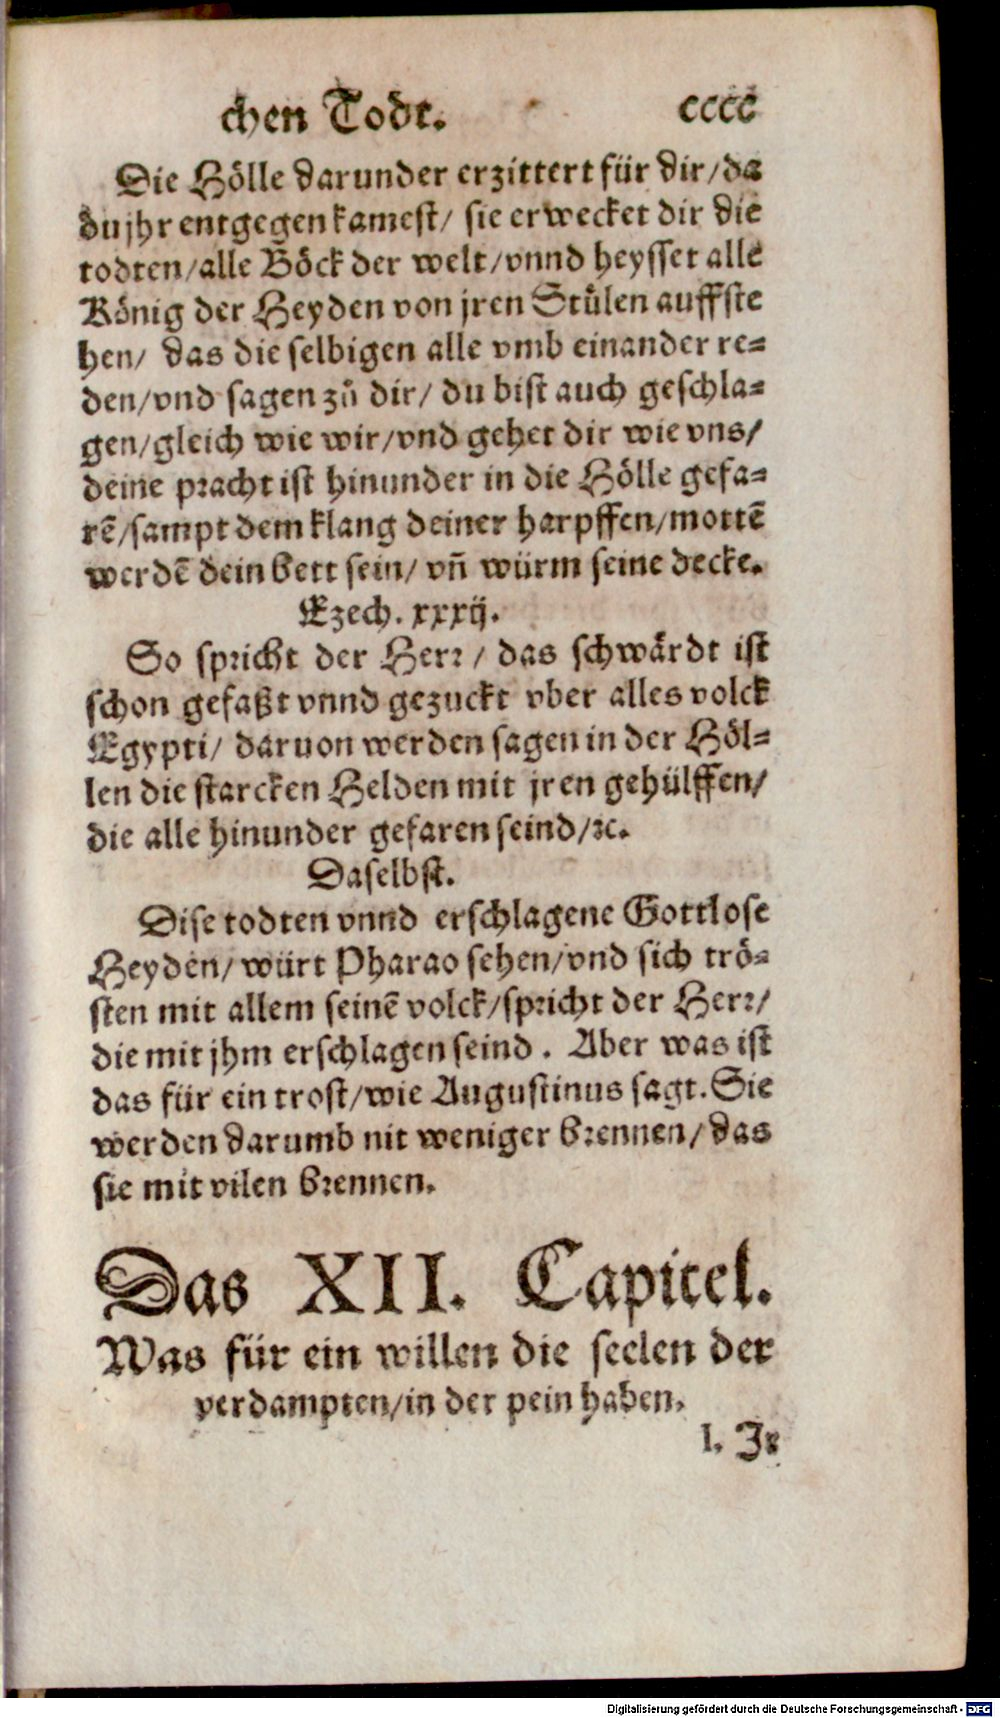 chen Todt. cccc
Die Hölle darunder erzittert für dir/da
du jhr entgegen kamest/ sie erwecket dir die
todten/alle Böck der welt/vnnd heysset alle
König der Heyden von jren Stůlen auffste
hen/ das die selbigen alle vmb einander re⸗
den/vnd sagen zů dir/ du bist auch geschla⸗
gen/gleich wie wir/vnd gehet dir wie vns/
deine pracht ist hinunder in die Hölle gefa⸗
rē/sampt dem klang deiner harpffen/mottē
werdē dein bett sein/ vñ würm seine decke.
Ezech. xxxij.
So spricht der Herr/ das schwårdt ist
schon gefaßt vnnd gezuckt vber alles volck
Egypti/ daruon werden sagen in der Höl⸗
len die starcken Helden mit jren gehülffen/
die alle hinunder gefaren seind/ꝛc.
Daselbst.
Dise todten vnnd erschlagene Gottlose
Heyden/ würt Pharao sehen/vnd sich trö⸗
sten mit allem seinē volck/spricht der Herr/
die mit jhm erschlagen seind. Aber was ist
das für ein trost/wie Augustinus sagt. Sie
werden darumb nit weniger brennen/das
sie mit vilen brennen.
Das XII. Capitel.
Was für ein willen die seelen der
verdampten/in der pein haben.
I. Jr
Digitalisierung gefördert durch die Deutsche Forschungsgemeinschaft - DFG